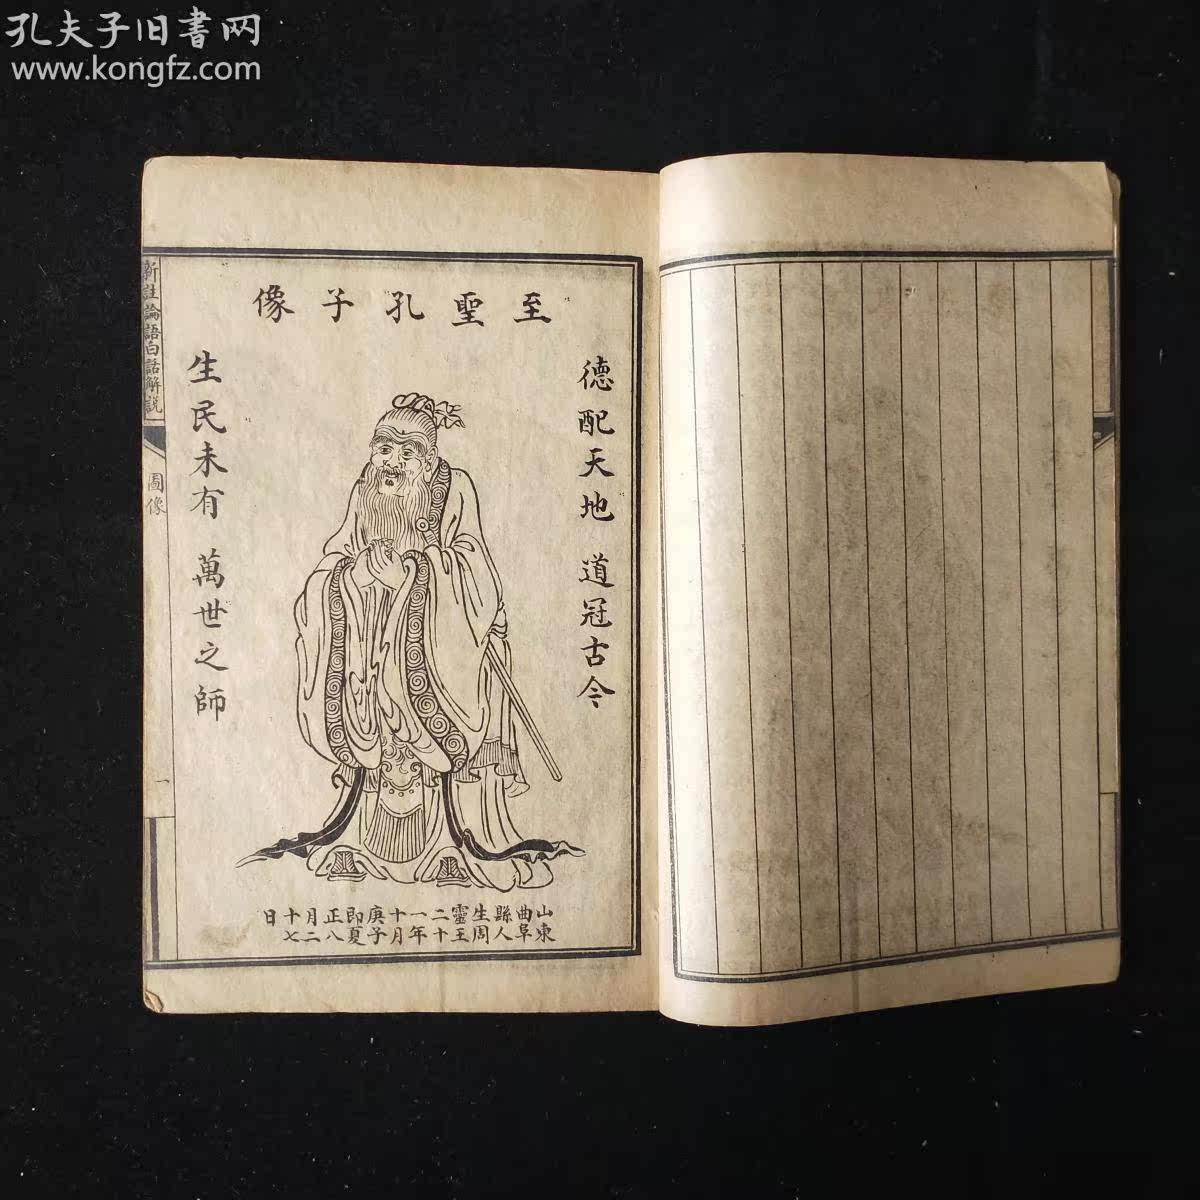 孔夫子旧書网
www.kongfz.com
至聖孔子像
德配天地 道冠古今
生民未有 萬世之師
山東
曲阜
縣人
生周
靈王
二十
一年
十月
庚子
即夏
正八
月二
十七
日
新註論語白話解説
圖像
一